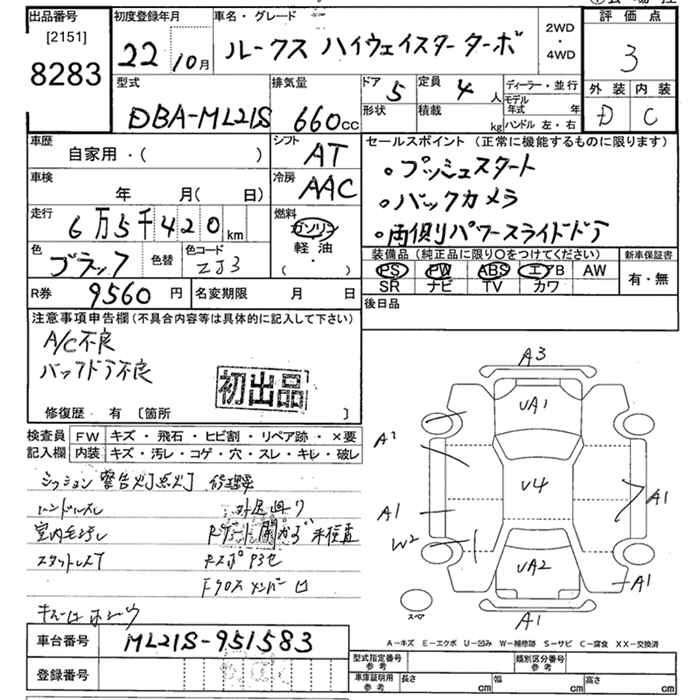 出品番号 初度登録年月 車名・グレード 評価点
[2151]
8283
22 10月 ルークス ハイウェイスターターボ 2WD・4WD 3
外装 内装
D C
型式 排気量 ドア 定員 ディーラー・並行
DBA-ML21S 660cc 5 4人 モデル年式 年
形状 積載 kg ハンドル 左・右
車歴 シフト セールスポイント (正常に機能するものに限ります)
自家用・( ) AT
・プッシュスタート
車検 冷房
年 月( 日) AAC
・バックカメラ
走行 燃料
6万5千420km ガソリン
軽油
・両側パワースライドドア
色 色替 色コード
ブラック ZJ3 ( ・ )
装備品 (純正品に限り○をつけてください) 新車保証書
PS PW ABS エアB AW 有・無
SR ナビ TV カワ
R券 9560円 名変期限 月 日
後日品
注意事項申告欄(不具合内容等は具体的に記入して下さい)
A/C不良
バックドア不良
初出品
修復歴 有 〔箇所 〕
検査員 FW キズ・飛石・ヒビ割・リペア跡・×要
記入欄 内装 キズ・汚レ・コゲ・穴・スレ・キレ・破レ
ミッション警告灯点灯 修理要
ハンドルスレ
A3
UA1
A1
U4
A1
A1
W2
UA2
A1
A1
スペア
A-キズ E-エクボ U-凹み W-補修跡 S-サビ C-腐食 XX-交換済
車台番号 ML21S-951583
登録番号
型式指定番号 参考 類別区分番号 参考
車庫証明用 参考 長さ cm 幅 cm 高さ cm